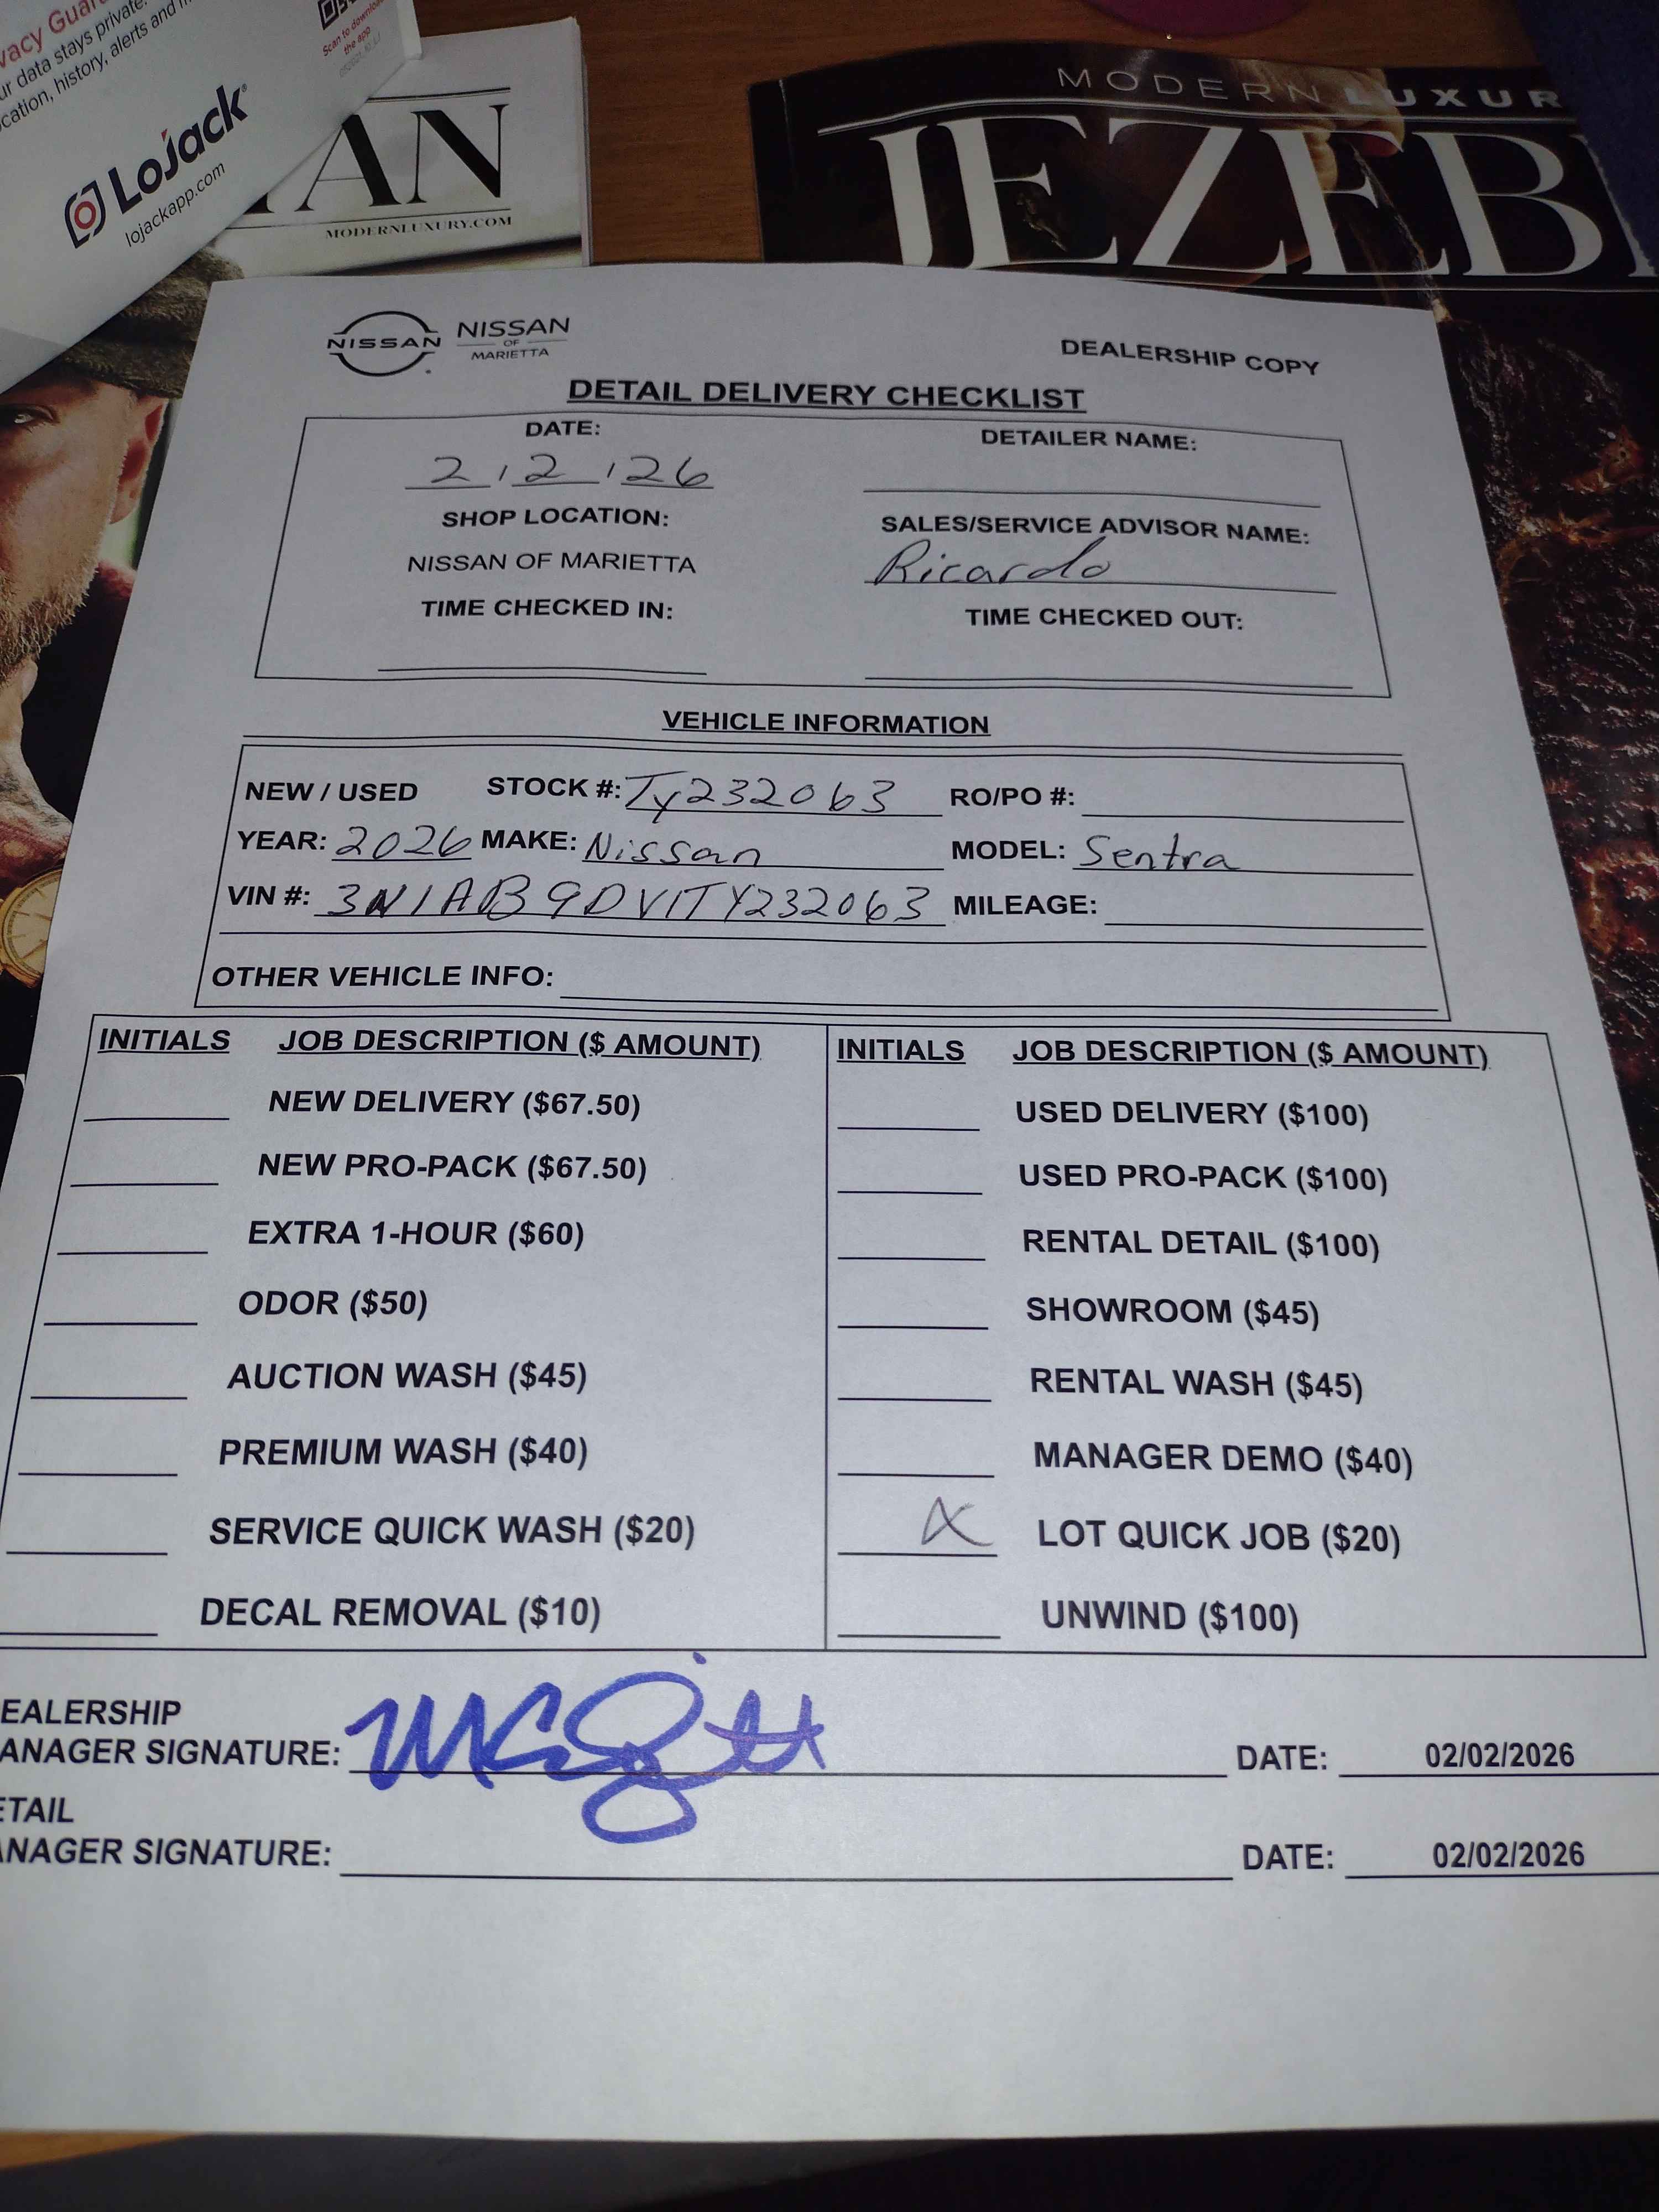 vacy Guar
ur data stays private.
cation, history, alerts and
Scan to download
the app
LoJack
lojackapp.com
AN
MODERNLUXURY.COM
MODERN LUXUR
JEZEB
NISSAN
NISSAN
OF
MARIETTA
DEALERSHIP COPY
DETAIL DELIVERY CHECKLIST
DATE: DETAILER NAME:
2/2/26
SHOP LOCATION: SALES/SERVICE ADVISOR NAME:
NISSAN OF MARIETTA Ricardo
TIME CHECKED IN: TIME CHECKED OUT:
VEHICLE INFORMATION
NEW / USED STOCK #: Ty232063 RO/PO #:
YEAR: 2026 MAKE: Nissan MODEL: Sentra
VIN #: 3N1AB9DV1TY232063 MILEAGE:
OTHER VEHICLE INFO:
INITIALS JOB DESCRIPTION ($ AMOUNT) INITIALS JOB DESCRIPTION ($ AMOUNT)
NEW DELIVERY ($67.50) USED DELIVERY ($100)
NEW PRO-PACK ($67.50) USED PRO-PACK ($100)
EXTRA 1-HOUR ($60) RENTAL DETAIL ($100)
ODOR ($50) SHOWROOM ($45)
AUCTION WASH ($45) RENTAL WASH ($45)
PREMIUM WASH ($40) MANAGER DEMO ($40)
SERVICE QUICK WASH ($20) X LOT QUICK JOB ($20)
DECAL REMOVAL ($10) UNWIND ($100)
EALERSHIP
ANAGER SIGNATURE: DATE: 02/02/2026
ETAIL
ANAGER SIGNATURE: DATE: 02/02/2026